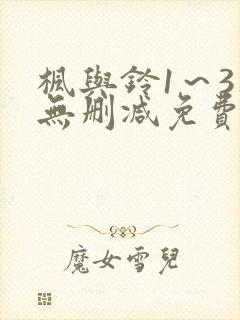 楓與鈴1~3
無刪減免費
魔女雪兒